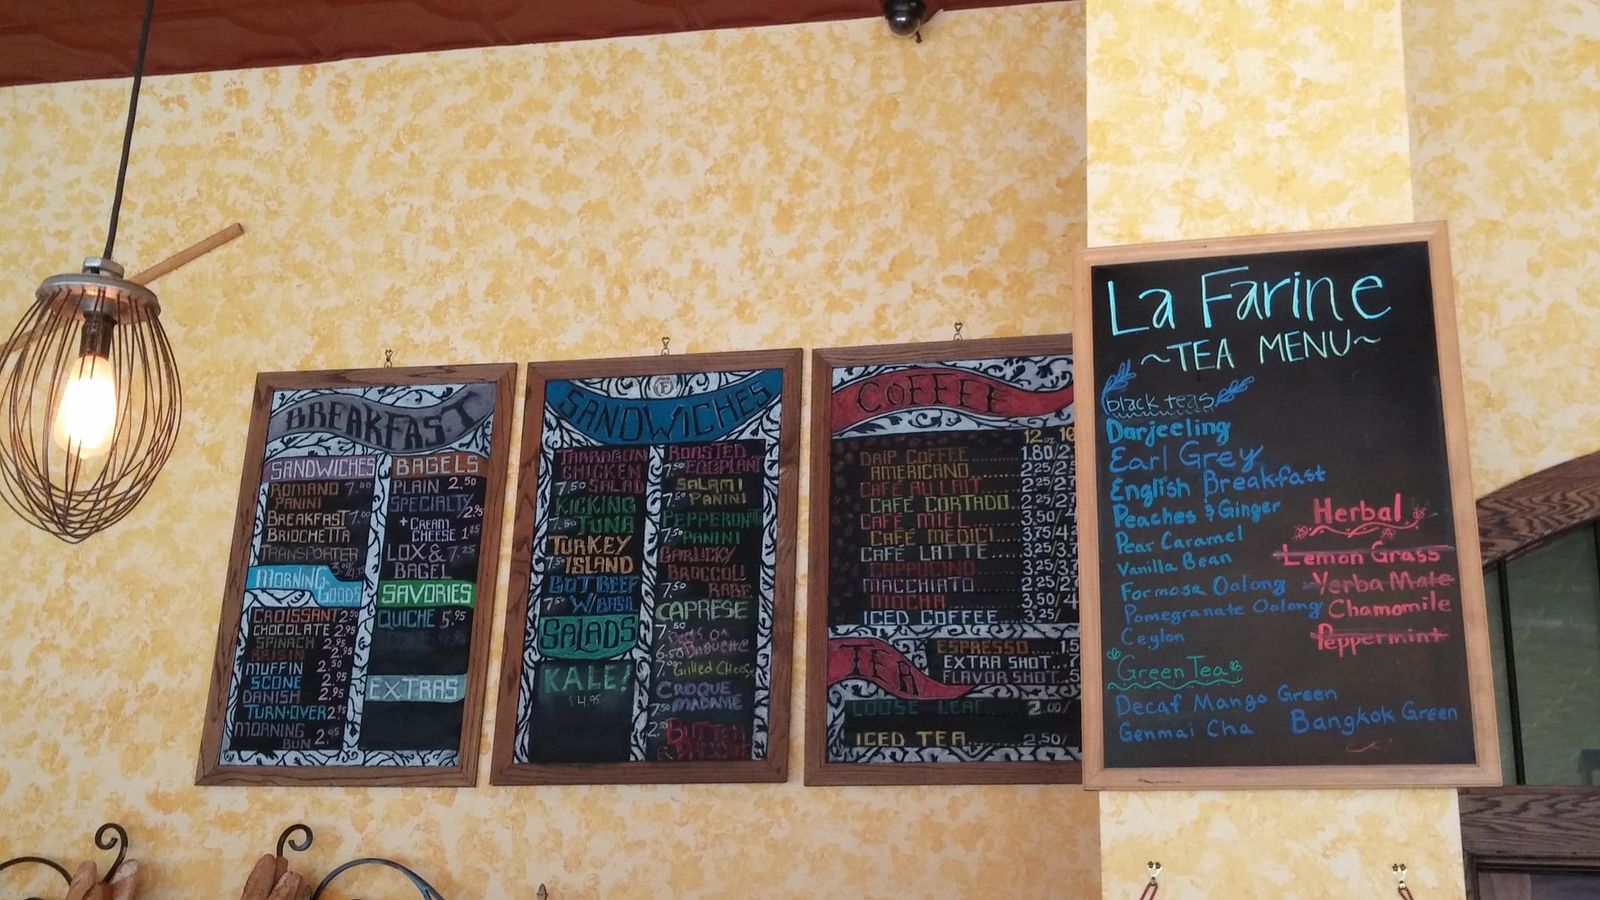 BREAKFAST
SANDWICHES
ROMANO 7.00
PANINI
BREAKFAST 7.00
BRIOCHETTA
TRANSPORTER
MORNING
GOODS
CROISSANT 2.50
CHOCOLATE 2.95
SPINACH 2.95
RAISIN 2.95
MUFFIN 2.50
SCONE 2.95
DANISH 2.95
TURN-OVER 2.95
MORNING
BUN 2.95
BAGELS
PLAIN 2.50
SPECIALTY
2.95
+ CREAM
CHEESE 1.25
LOX & 7.25
BAGEL
SAVORIES
QUICHE 5.95
EXTRAS
SANDWICHES
TARRAGON
CHICKEN
7.50 SALAD
KICKING
7.50 TUNA
TURKEY
7.50 ISLAND
GOT BEEF
7.50 W/BASIL
SALADS
KALE!
$4.95
ROASTED
7.50 EGGPLANT
SALAMI
7.50 PANINI
PEPPERONI
PANINI
GARLICKY
BROCCOLI
7.50 RABE
CAPRESE
7.50
6.50 Baguette
7.00 Grilled Cheese
CROQUE
7.50 MADAME
BUTTER
COFFEE
12 oz
DRIP COFFEE 1.80/2
AMERICANO 2.25/2
CAFÉ AU LAIT 2.25/2
CAFÉ CORTADO 2.25/2
CAFÉ MIEL 3.50/4
CAFÉ MEDICI 3.75/4
CAFÉ LATTE 3.25/3
CAPPUCINO 3.25/3
MACCHIATO 2.25/2
MOCHA 3.50/4
ICED COFFEE 3.25/
TEA
ESPRESSO 1.5
EXTRA SHOT
FLAVOR SHOT
LOOSE LEAF 2.00/
ICED TEA 2.50/
La Farine
~TEA MENU~
black teas
Darjeeling
Earl Grey
English Breakfast
Peaches & Ginger
Pear Caramel
Vanilla Bean
Formosa Oolong
Pomegranate Oolong
Ceylon
Herbal
Lemon Grass
Yerba Mate
Chamomile
Peppermint
Green Tea
Decaf Mango Green
Genmai Cha Bangkok Green